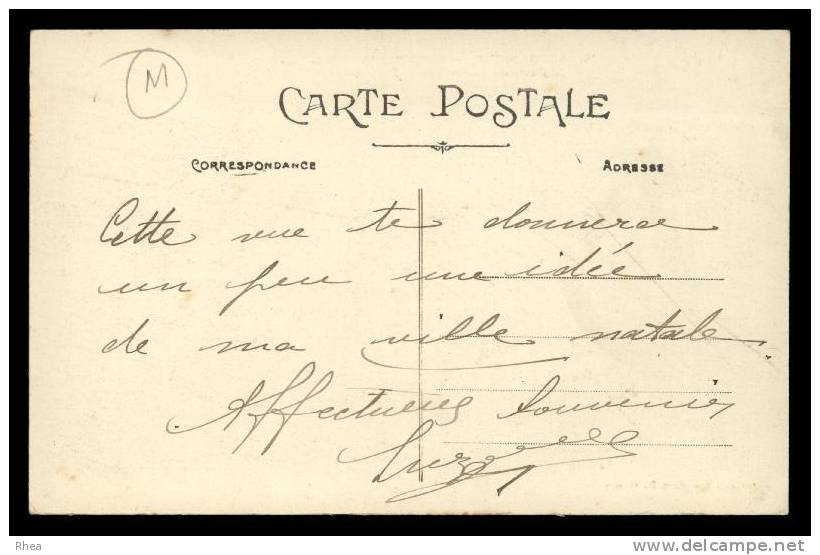 M
CARTE POSTALE
CORRESPONDANCE ADRESSE
Cette vue te donnera
un peu une idée
de ma ville natale
Affectueux Souvenir
Rhea
www.delcampe.net